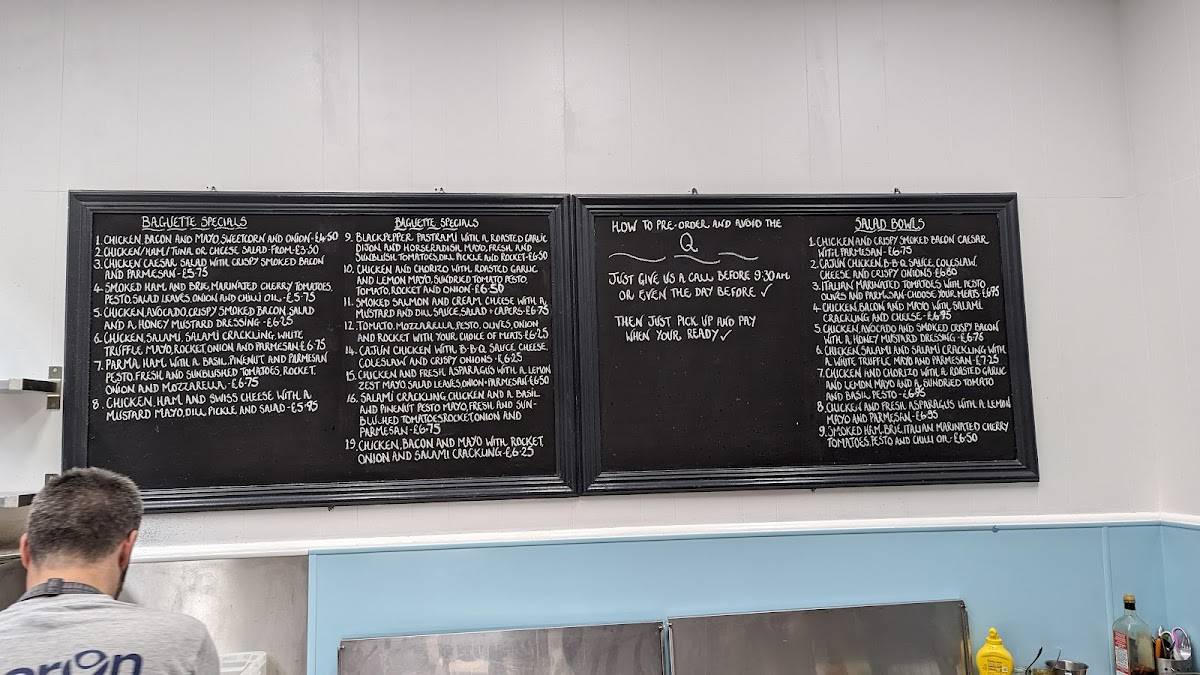 BAGUETTE SPECIALS
1. CHICKEN, BACON AND MAYO, SWEETCORN AND ONION - £4.50
2. CHICKEN/HAM/TUNA OR CHEESE SALAD FROM - £3.50
3. CHICKEN CAESAR SALAD WITH CRISPY SMOKED BACON
AND PARMESAN - £5.75
4. SMOKED HAM AND BRIE, MARINATED CHERRY TOMATOES,
PESTO, SALAD LEAVES, ONION AND CHILLI OIL - £5.75
5. CHICKEN, AVOCADO, CRISPY SMOKED BACON, SALAD
AND A HONEY MUSTARD DRESSING - £6.25
6. CHICKEN, SALAMI, SALAMI CRACKLING, WHITE
TRUFFLE MAYO, ROCKET, ONION AND PARMESAN - £6.75
7. PARMA HAM, WITH A BASIL, PINENUT AND PARMESAN
PESTO, FRESH AND SUNBLUSHED TOMATOES, ROCKET,
ONION AND MOZZARELLA - £6.75
8. CHICKEN, HAM, AND SWISS CHEESE WITH A
MUSTARD MAYO, DILL PICKLE AND SALAD - £5.95
BAGUETTE SPECIALS
9. BLACKPEPPER PASTRAMI WITH A ROASTED GARLIC
DIJON AND HORSERADISH MAYO, FRESH AND
SUNBLUSH TOMATOES, DILL PICKLE AND ROCKET - £6.50
10. CHICKEN AND CHORIZO WITH ROASTED GARLIC
AND LEMON MAYO, SUNDRIED TOMATO PESTO,
TOMATO, ROCKET AND ONION - £6.50
11. SMOKED SALMON AND CREAM CHEESE WITH A
MUSTARD AND DILL SAUCE, SALAD + CAPERS - £6.75
12. TOMATO, MOZZARELLA, PESTO, OLIVES, ONION
AND ROCKET WITH YOUR CHOICE OF MEATS - £6.25
14. CAJUN CHICKEN WITH B-B-Q SAUCE CHEESE,
COLESLAW AND CRISPY ONIONS - £6.25
15. CHICKEN AND FRESH ASPARAGUS WITH A LEMON
ZEST MAYO SALAD LEAVES, ONION + PARMESAN - £6.50
16. SALAMI CRACKLING, CHICKEN AND A BASIL
AND PINENUT PESTO MAYO, FRESH AND SUN-
BLUSHED TOMATOES, ROCKET, ONION AND
PARMESAN - £6.75
19. CHICKEN, BACON AND MAYO WITH, ROCKET,
ONION AND SALAMI CRACKLING - £6.25
HOW TO PRE-ORDER AND AVOID THE
Q
JUST GIVE US A CALL BEFORE 9:30AM
OR EVEN THE DAY BEFORE ✓
THEN JUST PICK UP AND PAY
WHEN YOUR READY ✓
SALAD BOWLS
1. CHICKEN AND CRISPY SMOKED BACON CAESAR
WITH PARMESAN - £6.75
2. CAJUN CHICKEN, B-B-Q SAUCE, COLESLAW,
CHEESE AND CRISPY ONIONS £6.80
3. ITALIAN MARINATED TOMATOES WITH PESTO
OLIVES AND PARMESAN - CHOOSE YOUR MEATS £6.75
4. CHICKEN, BACON AND MAYO WITH SALAMI
CRACKLING AND CHEESE - £6.95
5. CHICKEN, AVOCADO AND SMOKED CRISPY BACON
WITH A HONEY MUSTARD DRESSING - £6.75
6. CHICKEN, SALAMI AND SALAMI CRACKLING WITH
A WHITE TRUFFLE MAYO AND PARMESAN - £7.25
7. CHICKEN AND CHORIZO WITH A ROASTED GARLIC
AND LEMON MAYO AND A SUNDRIED TOMATO
AND BASIL PESTO - £6.95
8. CHICKEN AND FRESH ASPARAGUS WITH A LEMON
MAYO AND PARMESAN - £6.95
9. SMOKED HAM, BRIE, ITALIAN MARINATED CHERRY
TOMATOES, PESTO AND CHILLI OIL - £6.50